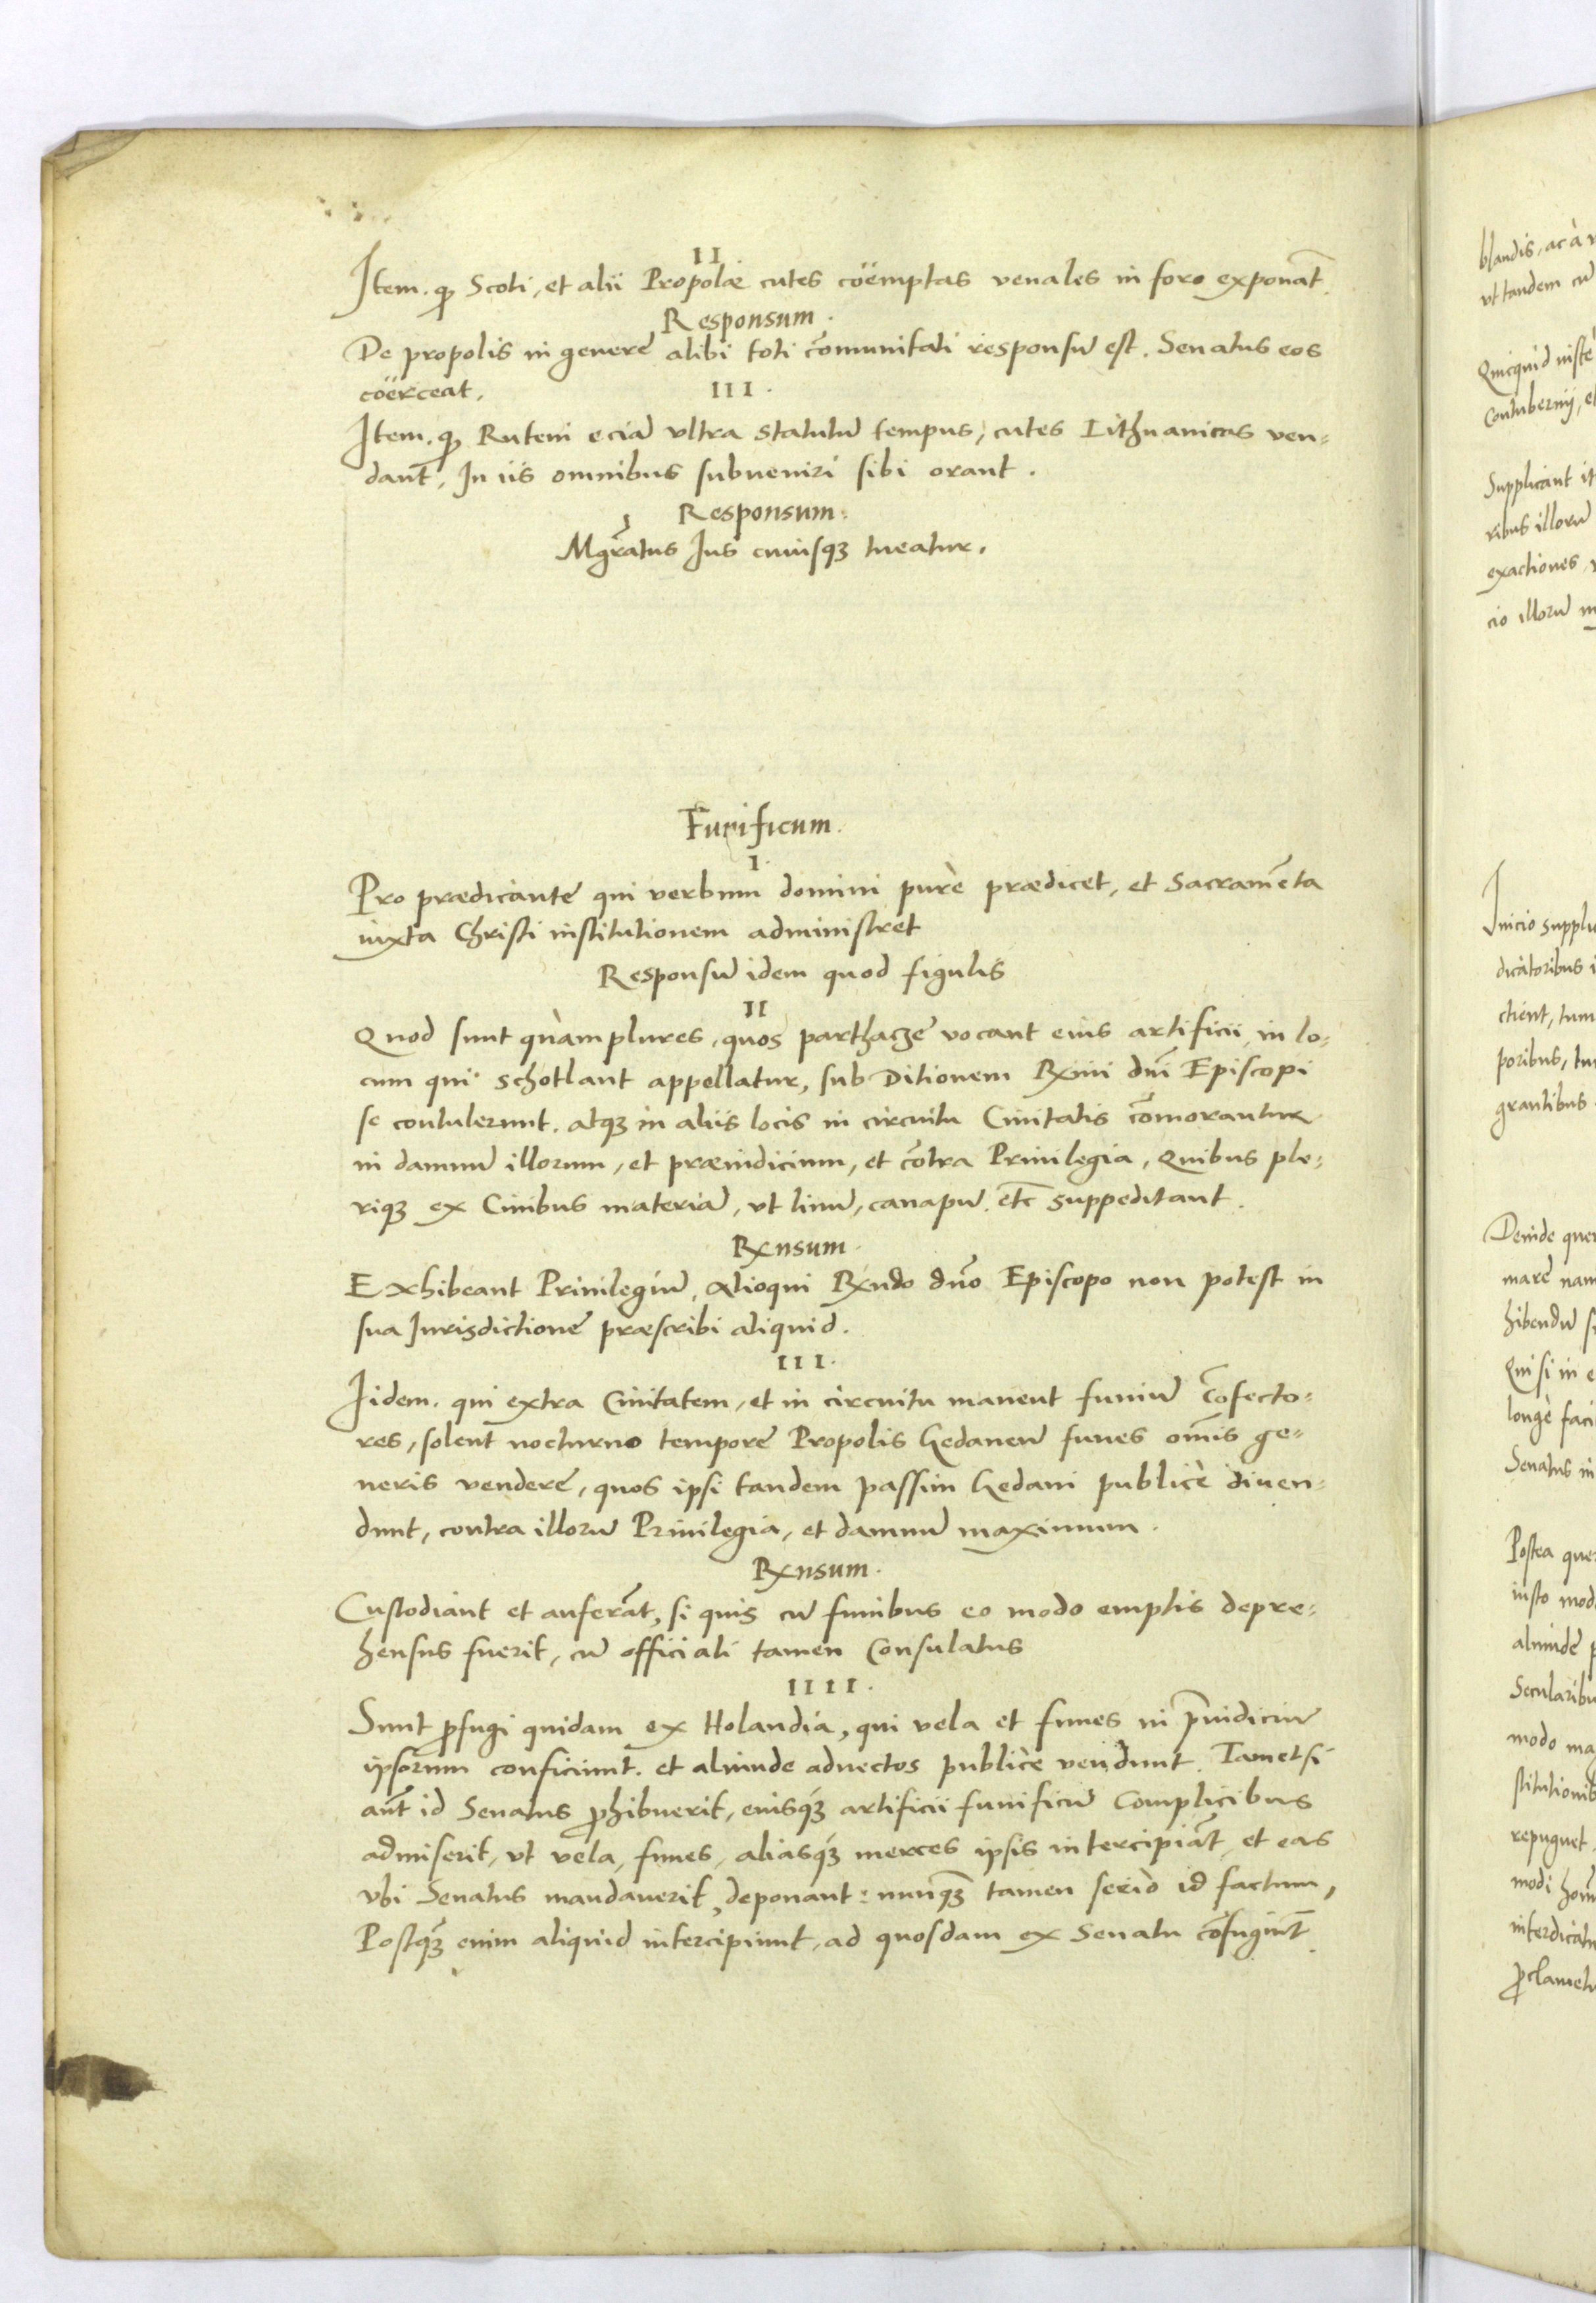 II
Item. ꝙ Scoti, et alii Propolæ cutes coëmptas venales in foro exponãt.
Responsum.
De propolis in genere alibi toti cõmunitati responsũ est. Senatus eos
coërceat.
III.
Item. ꝙ Ruteni eciã vltra statutũ tempus, cutes Lithuanicas ven=
dant̃. In iis omnibus subueniri sibi orant.
Responsum.
Mgr̃atus Ius cuiusqꝫ tueatur.
Funificum.
I.
Pro prædicante qui verbum domini purè prædicet, et Sacramẽta
iuxta Christi institutionem administret
Responsũ idem quod figulis
II
Quod sunt quàmplures, quos parthacze vocant eius artificii, in lo=
cum qui schotlant appellatur, sub Ditionem Rx̃mi dñi Episcopi
se contulerunt. atqꝫ in aliis locis in circuitu Ciuitatis cõmorantur
in damnũ illorum, et præiudicium, et cõtra Priuilegia, Quibus ple=
riqꝫ ex Ciuibus materiã, vt linũ, canapũ. etc̃ suppeditant.
Rx̃nsum.
Exhibeant Priuilegiũ, Alioqui Rx̃ndo dño Episcopo non potest in
sua Jurisdictione præscribi aliquid.
III.
Iidem. qui extra Ciuitatem, et in circuitu manent funiũ cõfecto=
res, solent nocturno tempore Propolis Gedaneñ funes om̃is ge=
neris vendere, quos ipsi tandem passim Gedani publicè diuen=
dunt, contra illorũ Priuilegia, et damnũ maximum.
Rx̃nsum.
Custodiant et auferãt, si quis cũ funibus eo modo emptis depre=
hensus fuerit, cũ officiali tamen Consulatus
IIII.
Sunt ꝓfugi quidam ex Holandia, qui vela et funes in p̃iudiciũ
ipsorum conficiunt. et aliunde aduectos publicè vendunt. Tametsi
aũt id Senatus ꝓhibuerit, eiusqꝫ artificii funificũ Complicibus
admiserit, vt vela, funes, aliasqꝫ merces ipsis intercipiãt, et eas
vbi Senatus mandauerit, deponant: nunqꝫ̃ tamen seriò id factum,
Postqꝫ̃ enim aliquid intercipiunt, ad quosdam ex Senatu cõfugiũt
blandis, ac à
vt tandem cũ
Quicquid
Contubernij, et
Supplicant it
ribus illorũ
exactiones
cio illorũ
Inicio suppli
dicatoribus
ctient, tum
poribus, tu
grantibus
Deinde quer
mare nam
hibendũ
Qui si in
longè faci
Senatus in
Postea que
iusto mod
aliunde p
Secularibu
modo ma
stitutionib
repugnet
modi hom̃
interdicatu
ꝓclametu